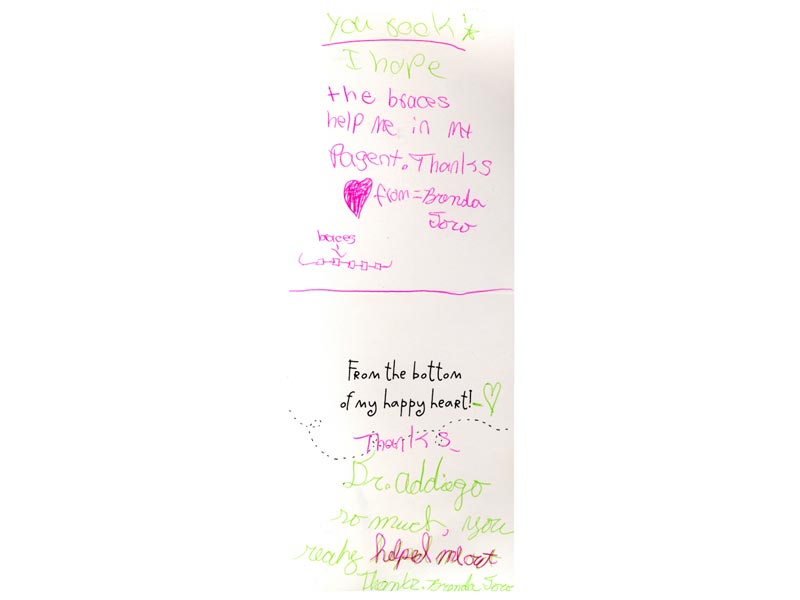 You rock!
I hope
the braces
help me in my
Pagent. Thanks
from = Brenda
Toro
braces
From the bottom
of my happy heart!
Thanks
Dr. addiego
so much, you
really helped me out
Thanks. Brenda Toro